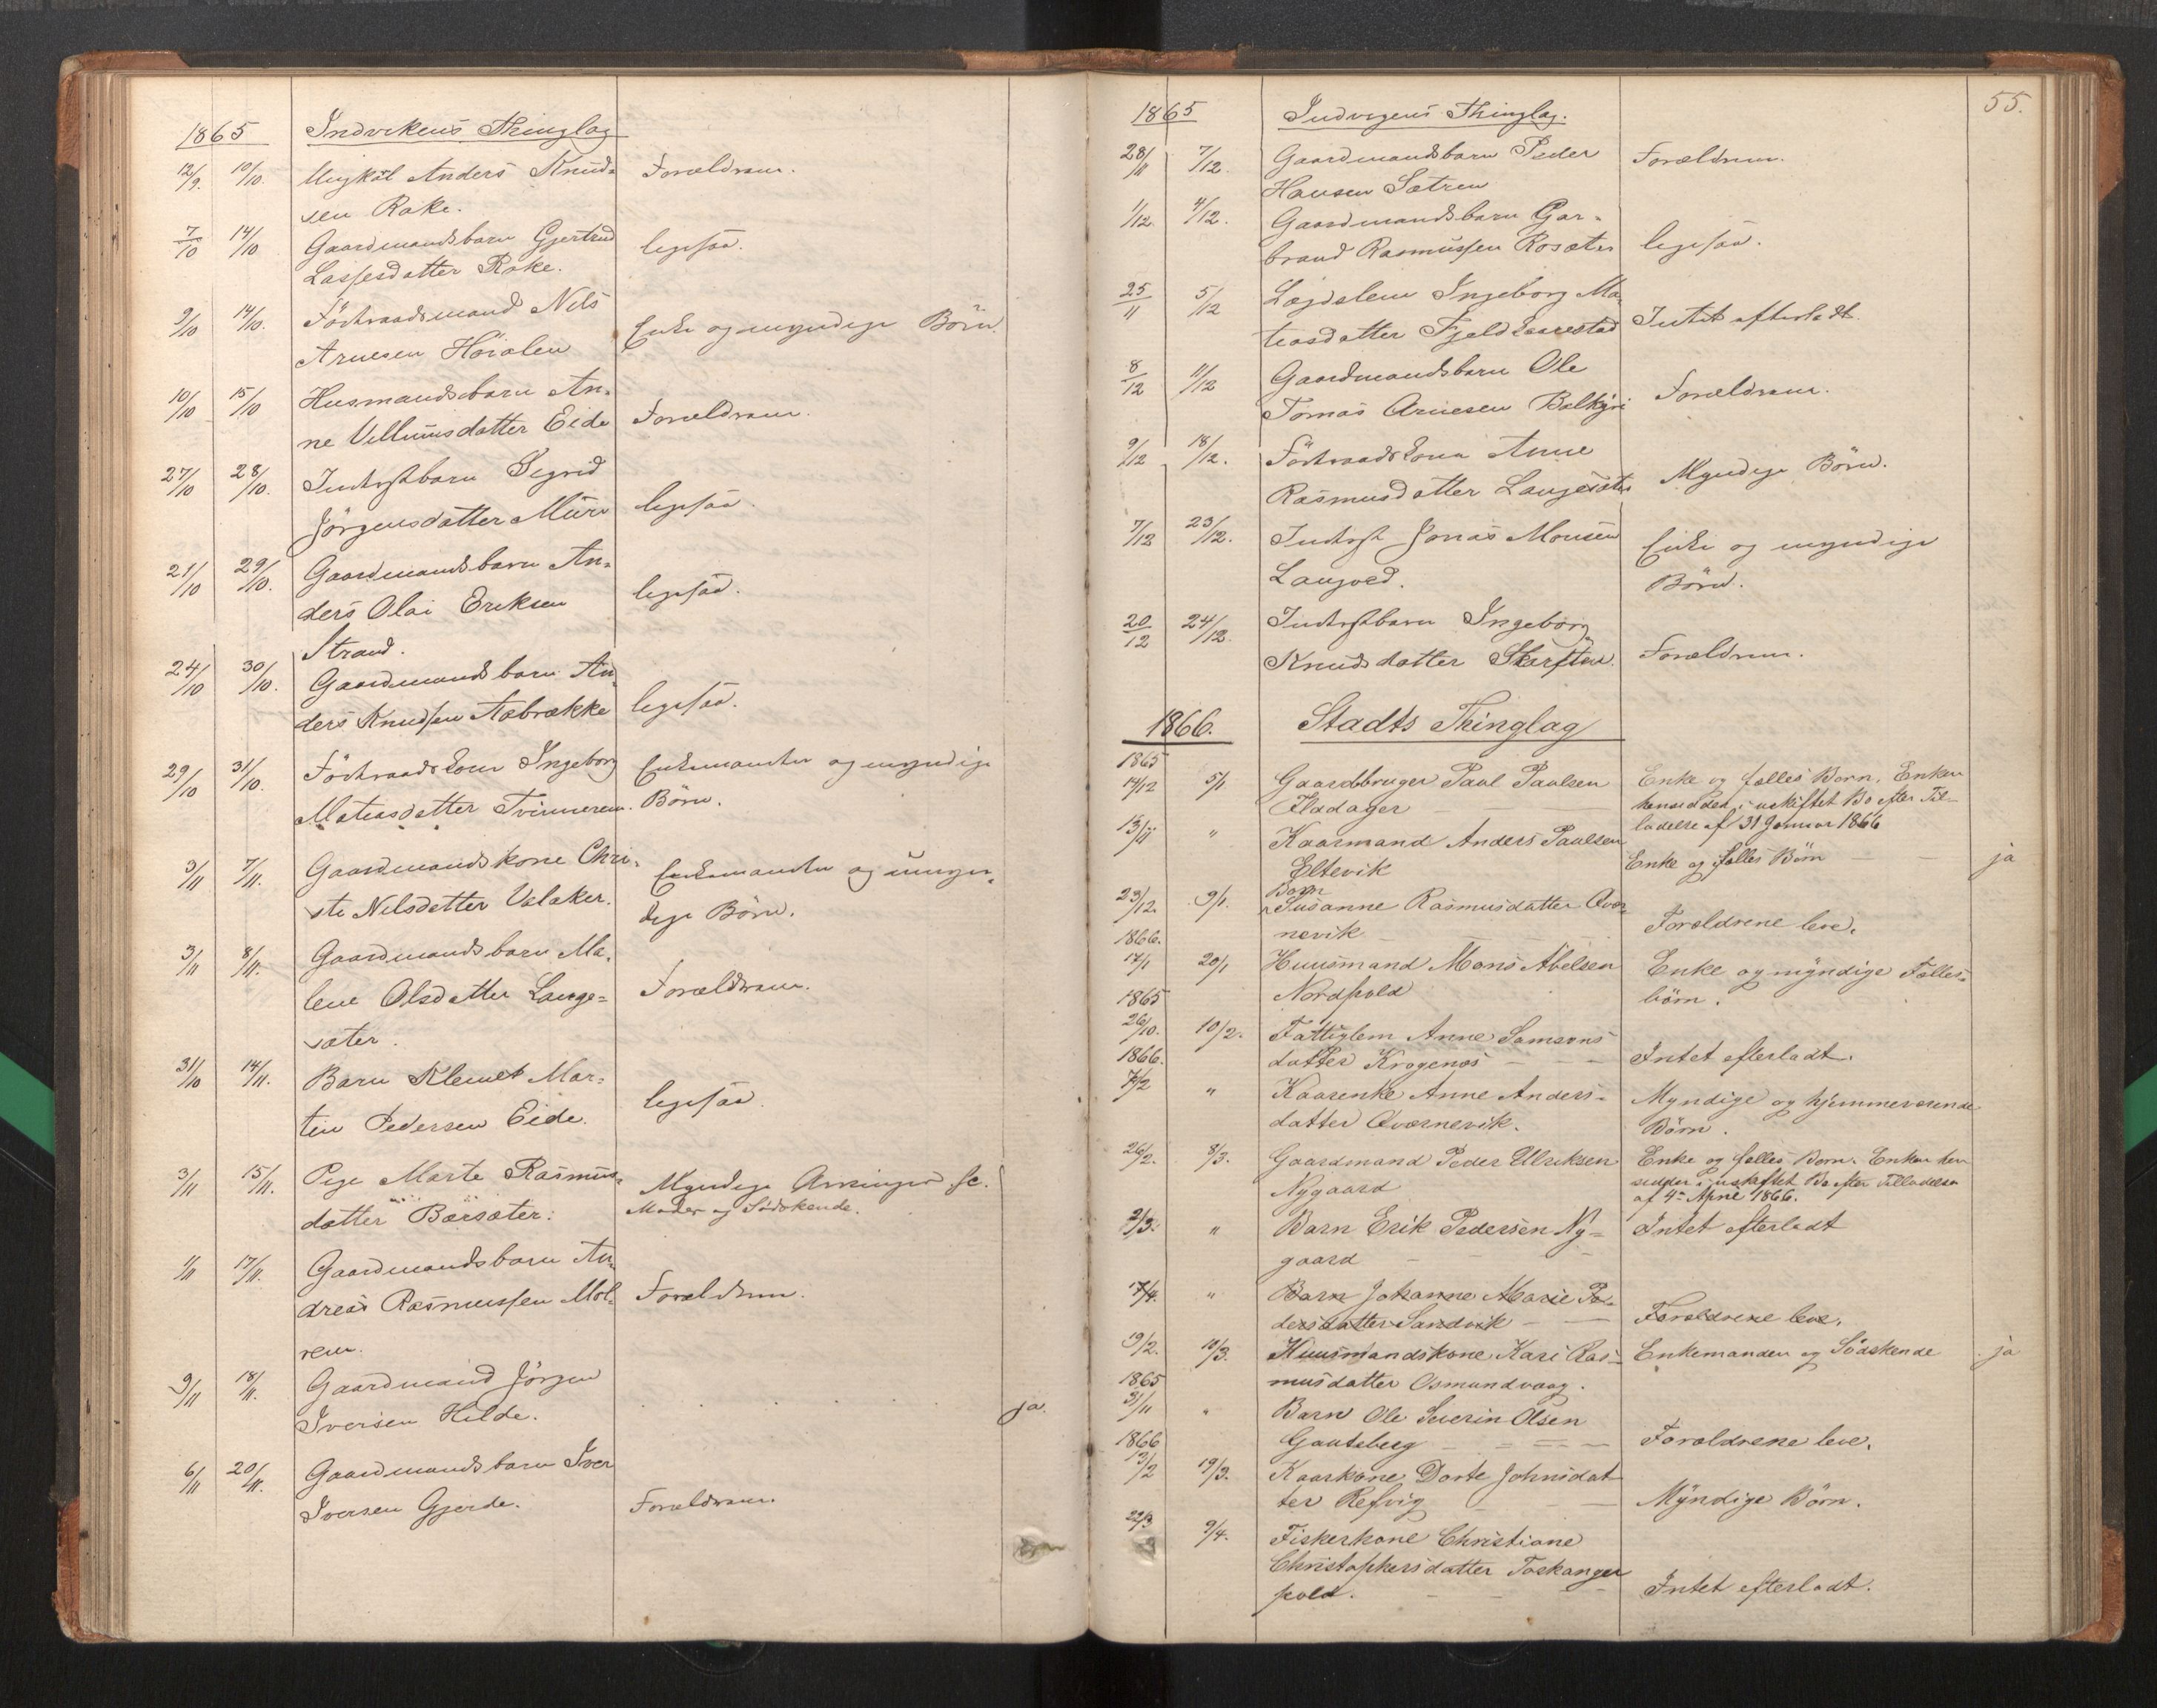 1865 Indvikens Thinglag
12/9. 10/10. Ungkal Anders Knud- Forældrene.
sen Rake.
7/10 14/10 Gaardmandsbarn Gjertrud ligesaa.
Lassesdatter Rake.
9/10 14/10. Föderaadsmand Nils Enke og myndige Börn.
Arnesen Höialen
10/10 15/10 Husmandsbarn An-
ne Villumsdatter Eide Forældrene.
27/10 28/10. Inderstbarn Sigrid
Jörgensdatter Muri ligesaa.
21/10 29/10. Gaardmandsbarn An-
ders Olai Eriksen ligesaa.
Strand.
24/10 30/10. Gaardmandsbarn An-
ders Knudsen Aabrække ligesaa.
29/10 31/10. Föderaadskone Ingeborg Enkemanden og myndige
Mateasdatter Tvinnerem. Börn.
3/11 7/11. Gaardmandskone Chri- Enkemanden og umyn-
ste Nilsdatter Valaker. dige Börn.
3/11 8/11. Gaardmandsbarn Ma-
lene Olsdatter Lange- Forældrene.
sæter.
31/10 14/11. Barn Klemet Mar-
tin Pedersen Eide. ligesaa.
3/11 15/11. Pige Marte Rasmus- Myndige Arvinger fc.
datter Bærsæter. Moder og Södskende.
1/11 17/11. Gaardmandsbarn An-
dreas Rasmussen Mel- Forældrene.
rem.
9/11 18/11. Gaardmand Jörgen
Iversen Hilde. ja.
6/11 20/11. Gaardmandsbarn Iver
Iversen Gjerde. Forældrene.
55.
1865 Indvigens Thinglag.
28/11 7/12. Gaardmandsbarn Peder Forældrene.
Hansen Sætren
1/12. 4/12. Gaardmandsbarn Gar-
brand Rasmussen Rosæter ligesaa.
25/11 5/12 Lægdslem Ingeborg Ma-
teasdatter Fjeldkaarstad Intet efterladt.
8/12 11/12 Gaardmandsbarn Ole
Tomas Arnesen Bolkøen Forældrene.
9/12 18/12. Föderaadskone Anne
Rasmusdatter Langesæter Myndige Börn.
7/12 23/12. Inderst Jonas Monsen Enke og myndige
Langved. Börn.
20/12 24/12. Inderstbarn Ingeborg
Knudsdatter Skarsten. Forældrene.
1866. Stadts Thinglag
1865
14/12 5/1 Gaardbruger Paul Paulsen Enke og fælles Børn. Enken
Fladager hensidder i uskiftet Bo efter Til-
ladelse af 31 Januar 1866
13/11 " Kaarmand Anders Paulsen
Eltevik Enke og fælles Börn ja
23/12. 9/1. Barn
Susanne Rasmusdatter Qvær-
nevik Forældrene leve.
1866.
17/1 20/1 Huusmand Mons Abelsen Enke og myndige Fælles-
Nordpold börn.
1865
26/10. 10/2. Fattiglem Anne Samsons
datter Krogenæs Intet efterladt.
1866.
7/2 " Kaarenke Anne Anders- Myndige og hjemmeværende
datter Qværnevik. Börn.
26/2. 8/3. Gaardmand Peder Ulriksen Enke og fælles Børn. Enken hen
Nygaard sidder i uskiftet Bo efter Tilladelse
af 4de April 1866.
2/3. " Barn Erik Pedersen Ny- Intet efterladt
gaard
17/4. " Barn Johanne Marie Pe-
dersdatter Sandvik Forældrene leve.
19/2. 10/3. Huusmandskone Kari Ras- Enkemanden og Södskende ja
musdatter Osmundvaag.
1865
31/11 " Barn Ole Severin Olsen
Gauteberg Forældrene leve.
1866
13/2 19/3. Kaarkone Dorte Johnsdat
ter Refvig Myndige Börn.
22/3 9/4. Fiskerkone Christiane
Christophersdatter Toskanger
pold. Intet efterladt.